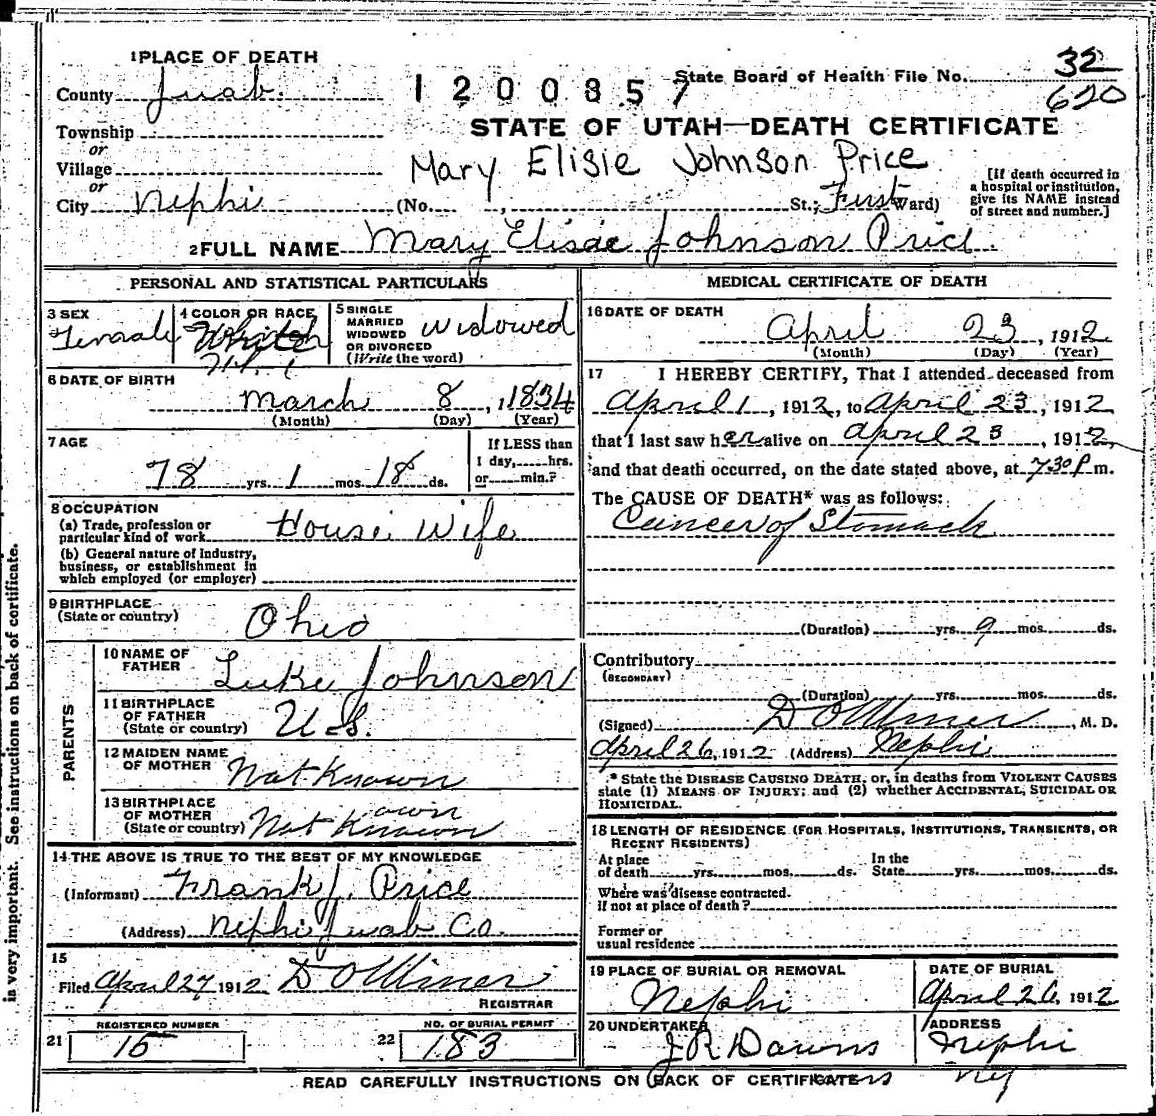 1 PLACE OF DEATH
County Juab.
1200857
State Board of Health File No. 32
620
STATE OF UTAH—DEATH CERTIFICATE
Township
or
Village
or
City Nephi
Mary Elisie Johnson Price
(No. , St.; First Ward)
[If death occurred in
a hospital or institution,
give its NAME instead
of street and number.]
2 FULL NAME Mary Elisie Johnson Price
PERSONAL AND STATISTICAL PARTICULARS
3 SEX
Female
4 COLOR OR RACE
White
5 SINGLE
MARRIED
WIDOWED
OR DIVORCED
(Write the word)
Widowed
6 DATE OF BIRTH
March 8, 1834
(Month) (Day) (Year)
7 AGE
78 yrs. 1 mos. 18 ds.
If LESS than
1 day, hrs.
or min.?
8 OCCUPATION
(a) Trade, profession or
particular kind of work House Wife
(b) General nature of Industry,
business, or establishment in
which employed (or employer)
9 BIRTHPLACE
(State or country)
Ohio
PARENTS
10 NAME OF
FATHER
Luke Johnson
11 BIRTHPLACE
OF FATHER
(State or country)
U.S.
12 MAIDEN NAME
OF MOTHER
Not Known
13 BIRTHPLACE
OF MOTHER
(State or country)
own
Not Known
14 THE ABOVE IS TRUE TO THE BEST OF MY KNOWLEDGE
(Informant) Frank J. Price
(Address) Nephi Juab Co.
15
Filed April 27 1912
REGISTRAR
REGISTERED NUMBER
21 15
NO. OF BURIAL PERMIT
22 183
MEDICAL CERTIFICATE OF DEATH
16 DATE OF DEATH
April 23, 1912
(Month) (Day) (Year)
17 I HEREBY CERTIFY, That I attended deceased from
April 1, 1912, to April 23, 1912
that I last saw her alive on April 23, 1912,
and that death occurred, on the date stated above, at 7.30 P m.
The CAUSE OF DEATH* was as follows:
Cancer of Stomach
(Duration) yrs. 9 mos. ds.
Contributory
(SECONDARY)
(Duration) yrs. mos. ds.
(Signed) , M. D.
April 26, 1912 (Address) Nephi
* State the DISEASE CAUSING DEATH, or, in deaths from VIOLENT CAUSES
state (1) MEANS OF INJURY; and (2) whether ACCIDENTAL, SUICIDAL OR
HOMICIDAL.
18 LENGTH OF RESIDENCE (FOR HOSPITALS, INSTITUTIONS, TRANSIENTS, OR
RECENT RESIDENTS)
At place
of death yrs. mos. ds.
In the
State yrs. mos. ds.
Where was disease contracted.
if not at place of death?
Former or
usual residence
19 PLACE OF BURIAL OR REMOVAL
Nephi
DATE OF BURIAL
April 26, 1912
20 UNDERTAKER
J R Dawns
ADDRESS
Nephi
READ CAREFULLY INSTRUCTIONS ON BACK OF CERTIFICATE
is very important. See instructions on back of certificate.